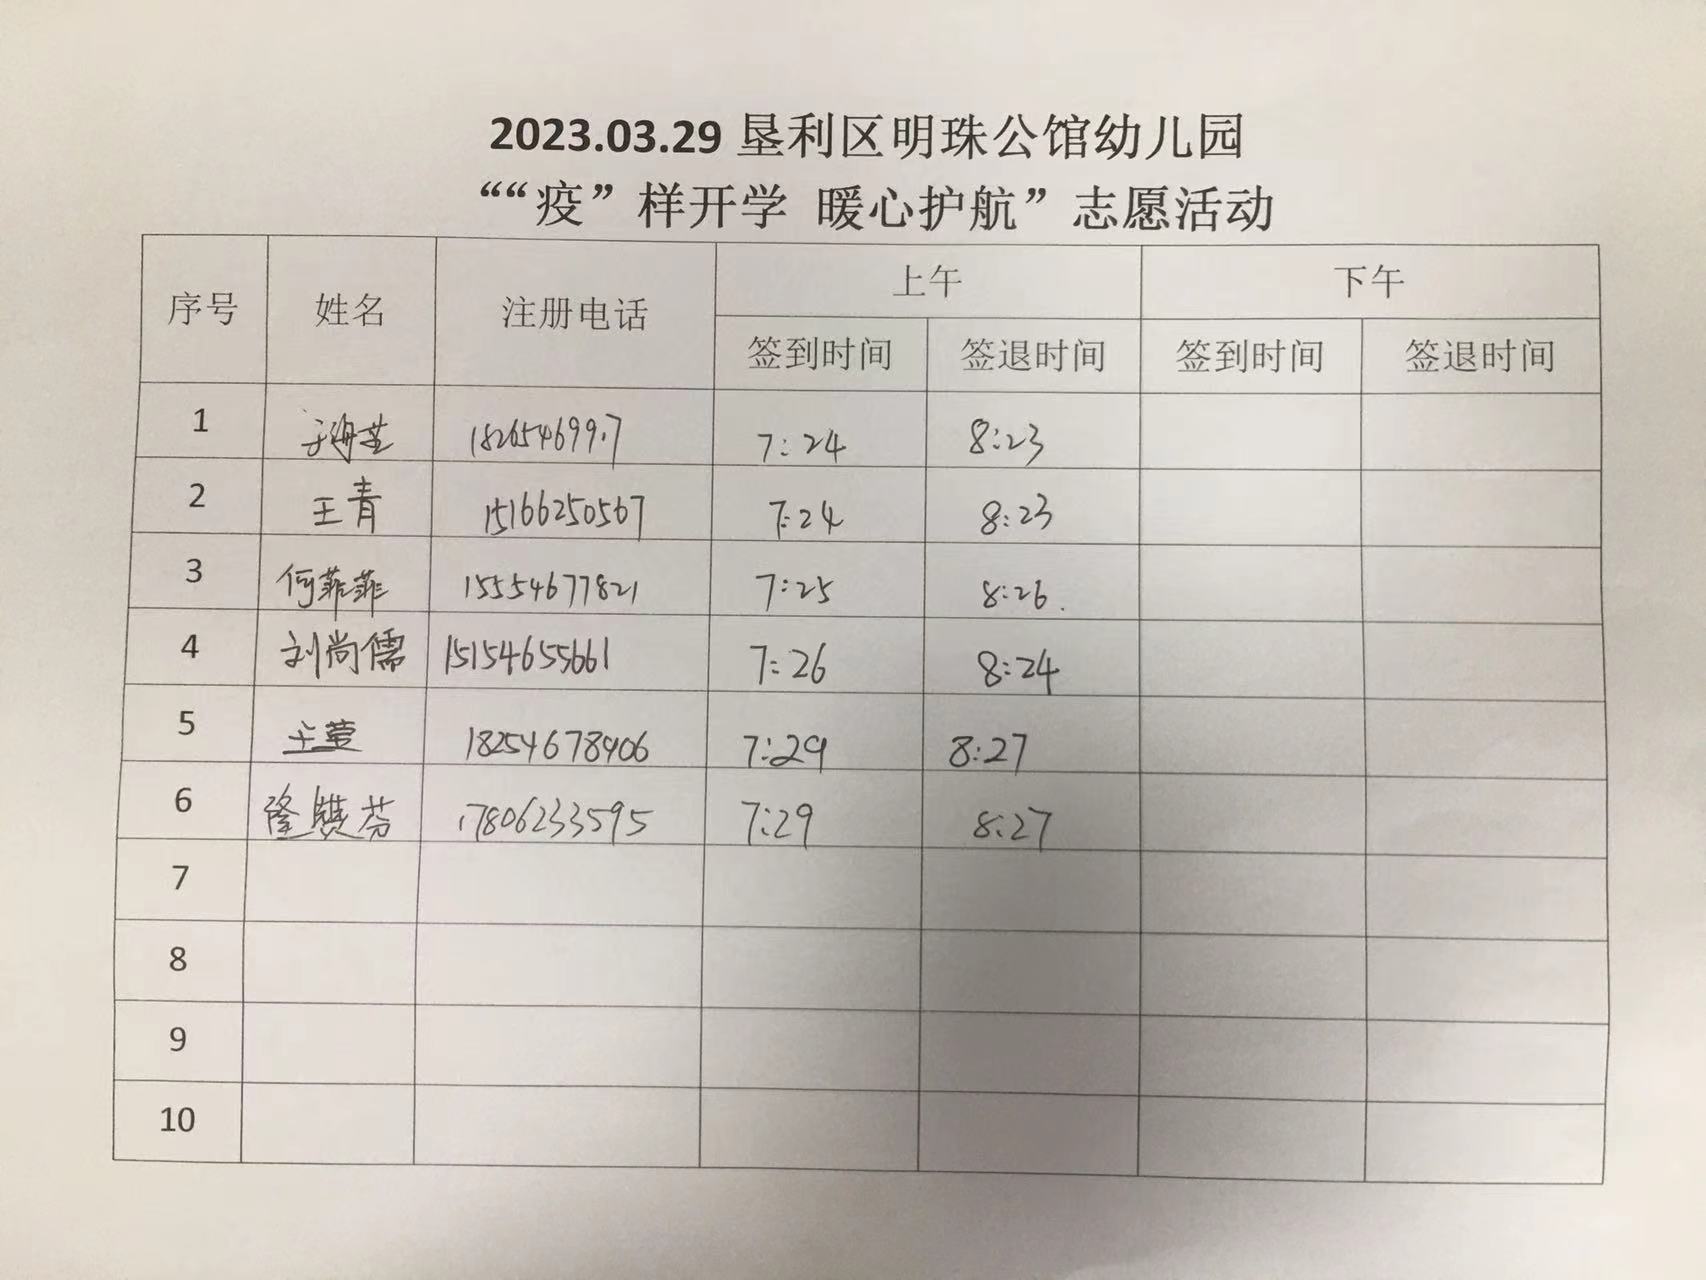 2023.03.29 垦利区明珠公馆幼儿园
““疫”样开学 暖心护航”志愿活动
序号 姓名 注册电话 上午 下午
签到时间 签退时间 签到时间 签退时间
1 7:24 8:23
2 王青 15166250567 7:24 8:23
3 何菲菲 15554677821 7:25 8:26.
4 刘尚儒 15154655661 7:26 8:24
5 18254678906 7:29 8:27
6 17806233595 7:29 8:27
7
8
9
10